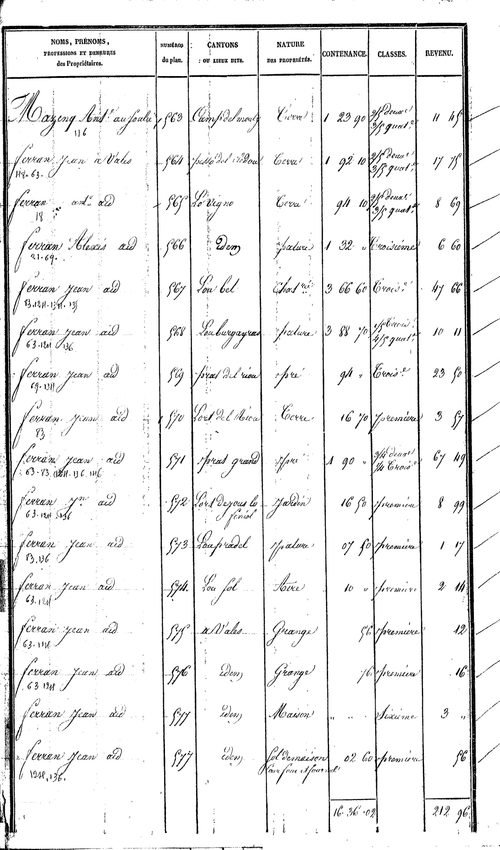 NOMS, PRÉNOMS, PROFESSIONS ET DEMEURES des Propriétaires. NUMÉRO du plan. CANTONS OU LIEUX DITS. NATURE DES PROPRIÉTÉS. CONTENANCE. CLASSES. REVENU.
Mazenq Ant.e au Soulié 563 Camp del mouly Terre 1 23 90 2/5 deux.e 3/5 quat.e 11 45
116
ferran Jean a Vales 564 Terre 1 92 10 2/5 deux.e 3/5 quat.e 17 75
ferran ant. aid 565 Lo Vigno Terre 94 10 deux.e 3/5 quat.e 8 69
18
ferran Alexis aid 566 idem pature 1 32 " Troisième 6 60
21.69.
ferran Jean aid 567 Lou bel Chat.re 3 66 60 Trois.e 47 66
ferran Jean aid 568 Lou burgayras pature 3 88 70 1/5 Trois. 4/5 quat. 10 11
ferran Jean aid 569 prat del riou pré 94 " Trois.e 23 50
ferran Jean aid 570 L'ort del Riou Terre 16 70 première 3 57
83
ferran Jean aid 571 prat grand pré 1 90 " 3/4 deux.e 1/4 Trois.e 67 49
ferran J.n aid 572 L'ort dejous lo féniol Jardin 16 50 première 8 99
ferran Jean aid 573 Lou pradel pature 07 50 première 1 17
83.136
ferran Jean aid 574 Lou Sol Aire 10 " première 2 14
ferran Jean aid 575 a Vales Grange 56 première 12
ferran Jean aid 576 idem Grange 76 première 16
ferran Jean aid 577 idem Maison " " Sixième 3 "
ferran Jean aid 577 idem Sol de maison 02 60 première 56
16 36 02 212 96